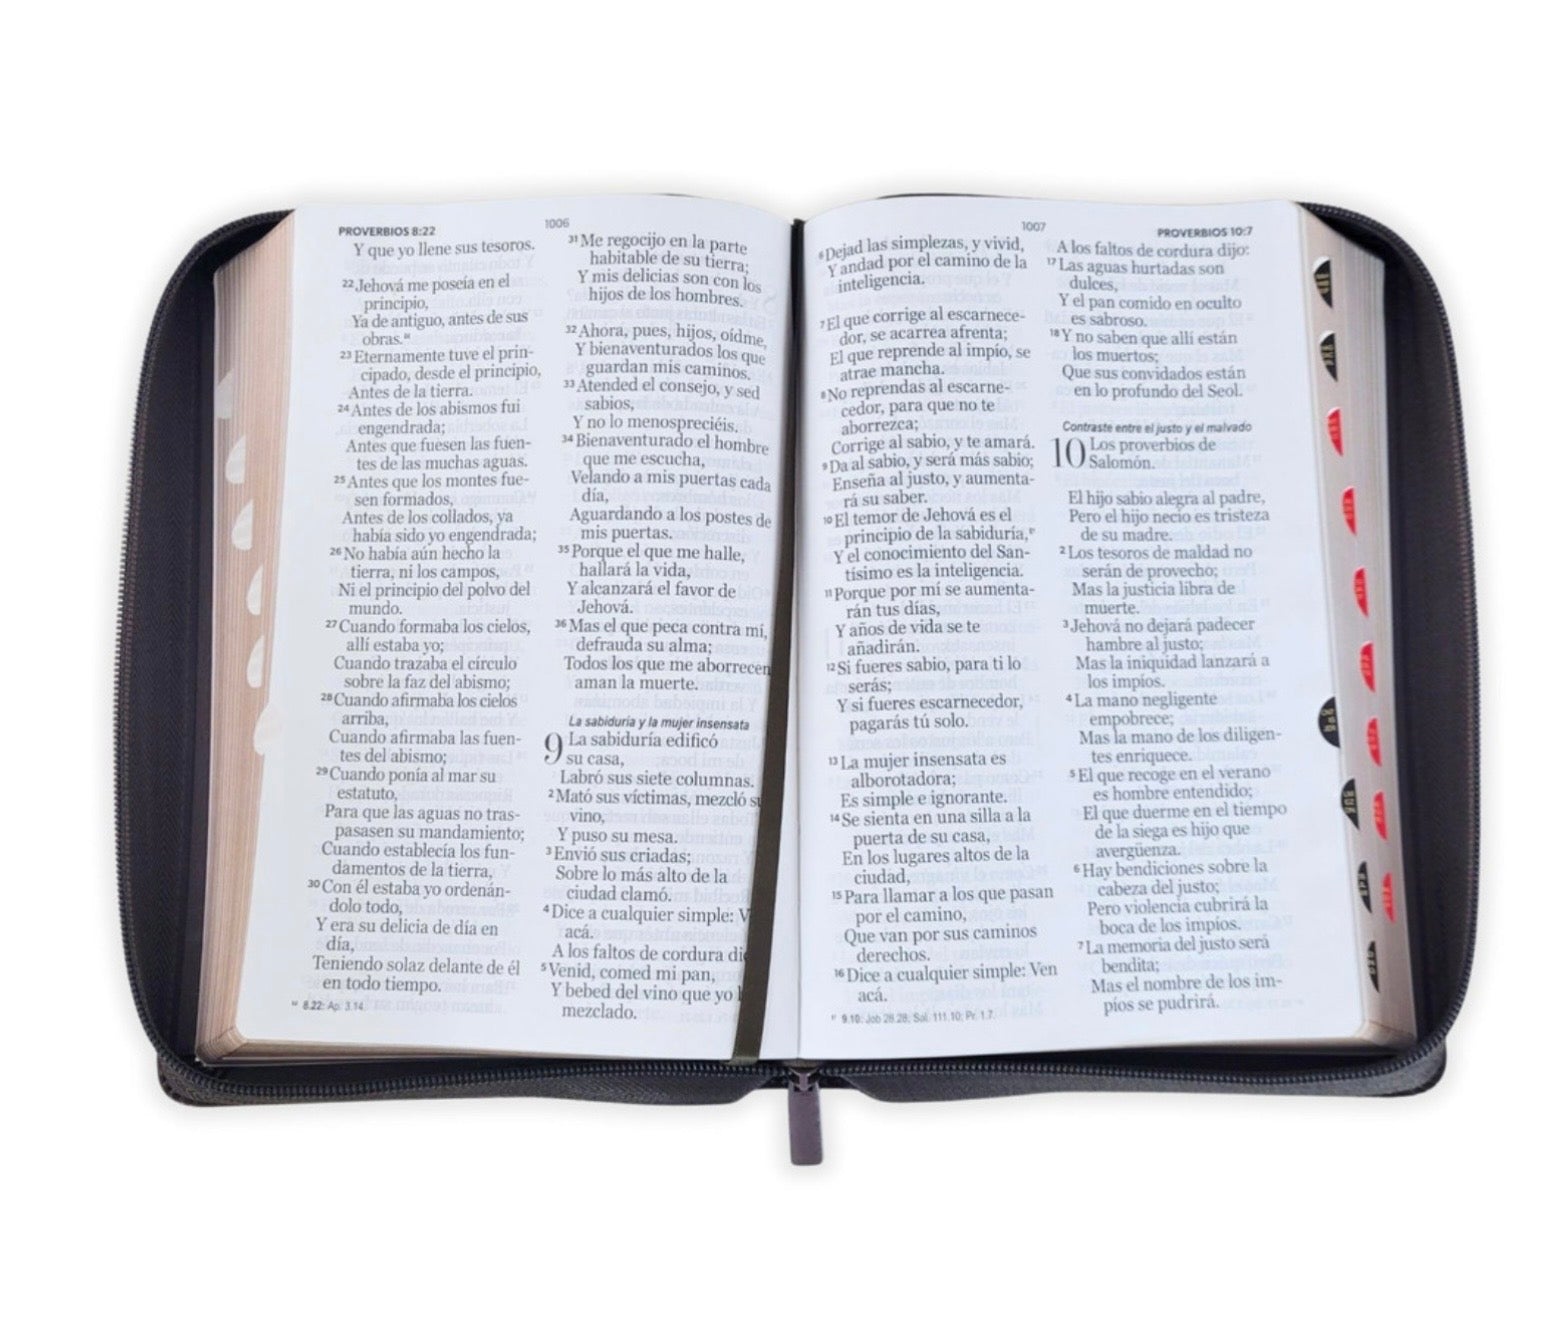 PROVERBIOS 8:22
1006
Y que yo llene sus tesoros.
22 Jehová me poseía en el
principio,
Ya de antiguo, antes de sus
obras.
23 Eternamente tuve el prin-
cipado, desde el principio,
Antes de la tierra.
24 Antes de los abismos fui
engendrada;
Antes que fuesen las fuen-
tes de las muchas aguas.
25 Antes que los montes fue-
sen formados,
Antes de los collados, ya
había sido yo engendrada;
26 No había aún hecho la
tierra, ni los campos,
Ni el principio del polvo del
mundo.
27 Cuando formaba los cielos,
allí estaba yo;
Cuando trazaba el círculo
sobre la faz del abismo;
28 Cuando afirmaba los cielos
arriba,
Cuando afirmaba las fuen-
tes del abismo;
29 Cuando ponía al mar su
estatuto,
Para que las aguas no tras-
pasasen su mandamiento;
Cuando establecía los fun-
damentos de la tierra,
30 Con él estaba yo ordenán-
dolo todo,
Y era su delicia de día en
día,
Teniendo solaz delante de él
en todo tiempo.
8.22: Ap. 3.14.
31 Me regocijo en la parte
habitable de su tierra;
Y mis delicias son con los
hijos de los hombres.
32 Ahora, pues, hijos, oídme,
Y bienaventurados los que
guardan mis caminos.
33 Atended el consejo, y sed
sabios,
Y no lo menospreciéis.
34 Bienaventurado el hombre
que me escucha,
Velando a mis puertas cada
día,
Aguardando a los postes de
mis puertas.
35 Porque el que me halle,
hallará la vida,
Y alcanzará el favor de
Jehová.
36 Mas el que peca contra mí,
defrauda su alma;
Todos los que me aborrecen
aman la muerte.
La sabiduría y la mujer insensata
9 La sabiduría edificó
su casa,
Labró sus siete columnas.
2 Mató sus víctimas, mezcló s
vino,
Y puso su mesa.
3 Envió sus criadas;
Sobre lo más alto de la
ciudad clamó.
4 Dice a cualquier simple: V
acá.
A los faltos de cordura di
5 Venid, comed mi pan,
Y bebed del vino que yo
mezclado.
1007
PROVERBIOS 10:7
6 Dejad las simplezas, y vivid,
Y andad por el camino de la
inteligencia.
7 El que corrige al escarnece-
dor, se acarrea afrenta;
El que reprende al impío, se
atrae mancha.
8 No reprendas al escarne-
cedor, para que no te
aborrezca;
Corrige al sabio, y te amará.
9 Da al sabio, y será más sabio;
Enseña al justo, y aumenta-
rá su saber.
10 El temor de Jehová es el
principio de la sabiduría,
Y el conocimiento del San-
tísimo es la inteligencia.
11 Porque por mí se aumenta-
rán tus días,
Y años de vida se te
añadirán.
12 Si fueres sabio, para ti lo
serás;
Y si fueres escarnecedor,
pagarás tú solo.
13 La mujer insensata es
alborotadora;
Es simple e ignorante.
14 Se sienta en una silla a la
puerta de su casa,
En los lugares altos de la
ciudad,
15 Para llamar a los que pasan
por el camino,
Que van por sus caminos
derechos.
16 Dice a cualquier simple: Ven
acá.
9.10: Job 28.28; Sal. 111.10; Pr. 1.7.
A los faltos de cordura dijo:
17 Las aguas hurtadas son
dulces,
Y el pan comido en oculto
es sabroso.
18 Y no saben que allí están
los muertos;
Que sus convidados están
en lo profundo del Seol.
Contraste entre el justo y el malvado
10 Los proverbios de
Salomón.
El hijo sabio alegra al padre,
Pero el hijo necio es tristeza
de su madre.
2 Los tesoros de maldad no
serán de provecho;
Mas la justicia libra de
muerte.
3 Jehová no dejará padecer
hambre al justo;
Mas la iniquidad lanzará a
los impíos.
4 La mano negligente
empobrece;
Mas la mano de los diligen-
tes enriquece.
5 El que recoge en el verano
es hombre entendido;
El que duerme en el tiempo
de la siega es hijo que
avergüenza.
6 Hay bendiciones sobre la
cabeza del justo;
Pero violencia cubrirá la
boca de los impíos.
7 La memoria del justo será
bendita;
Mas el nombre de los im-
píos se pudrirá.